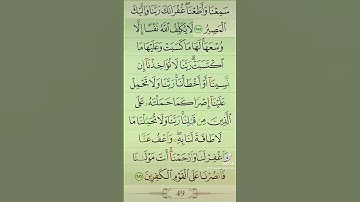 سَمِعْنَا وَأَطَعْنَا ۖ غُفْرَانَكَ رَبَّنَا وَإِلَيْكَ
الْمَصِيرُ ٢٨٥ لَا يُكَلِّفُ اللَّهُ نَفْسًا إِلَّا
وُسْعَهَا ۚ لَهَا مَا كَسَبَتْ وَعَلَيْهَا مَا
اكْتَسَبَتْ ۗ رَبَّنَا لَا تُؤَاخِذْنَا إِن
نَّسِينَا أَوْ أَخْطَأْنَا ۚ رَبَّنَا وَلَا تَحْمِلْ
عَلَيْنَا إِصْرًا كَمَا حَمَلْتَهُ عَلَى
الَّذِينَ مِن قَبْلِنَا ۚ رَبَّنَا وَلَا تُحَمِّلْنَا مَا
لَا طَاقَةَ لَنَا بِهِ ۖ وَاعْفُ عَنَّا
وَاغْفِرْ لَنَا وَارْحَمْنَا ۚ أَنتَ مَوْلَانَا
فَانصُرْنَا عَلَى الْقَوْمِ الْكَافِرِينَ ٢٨٦
49